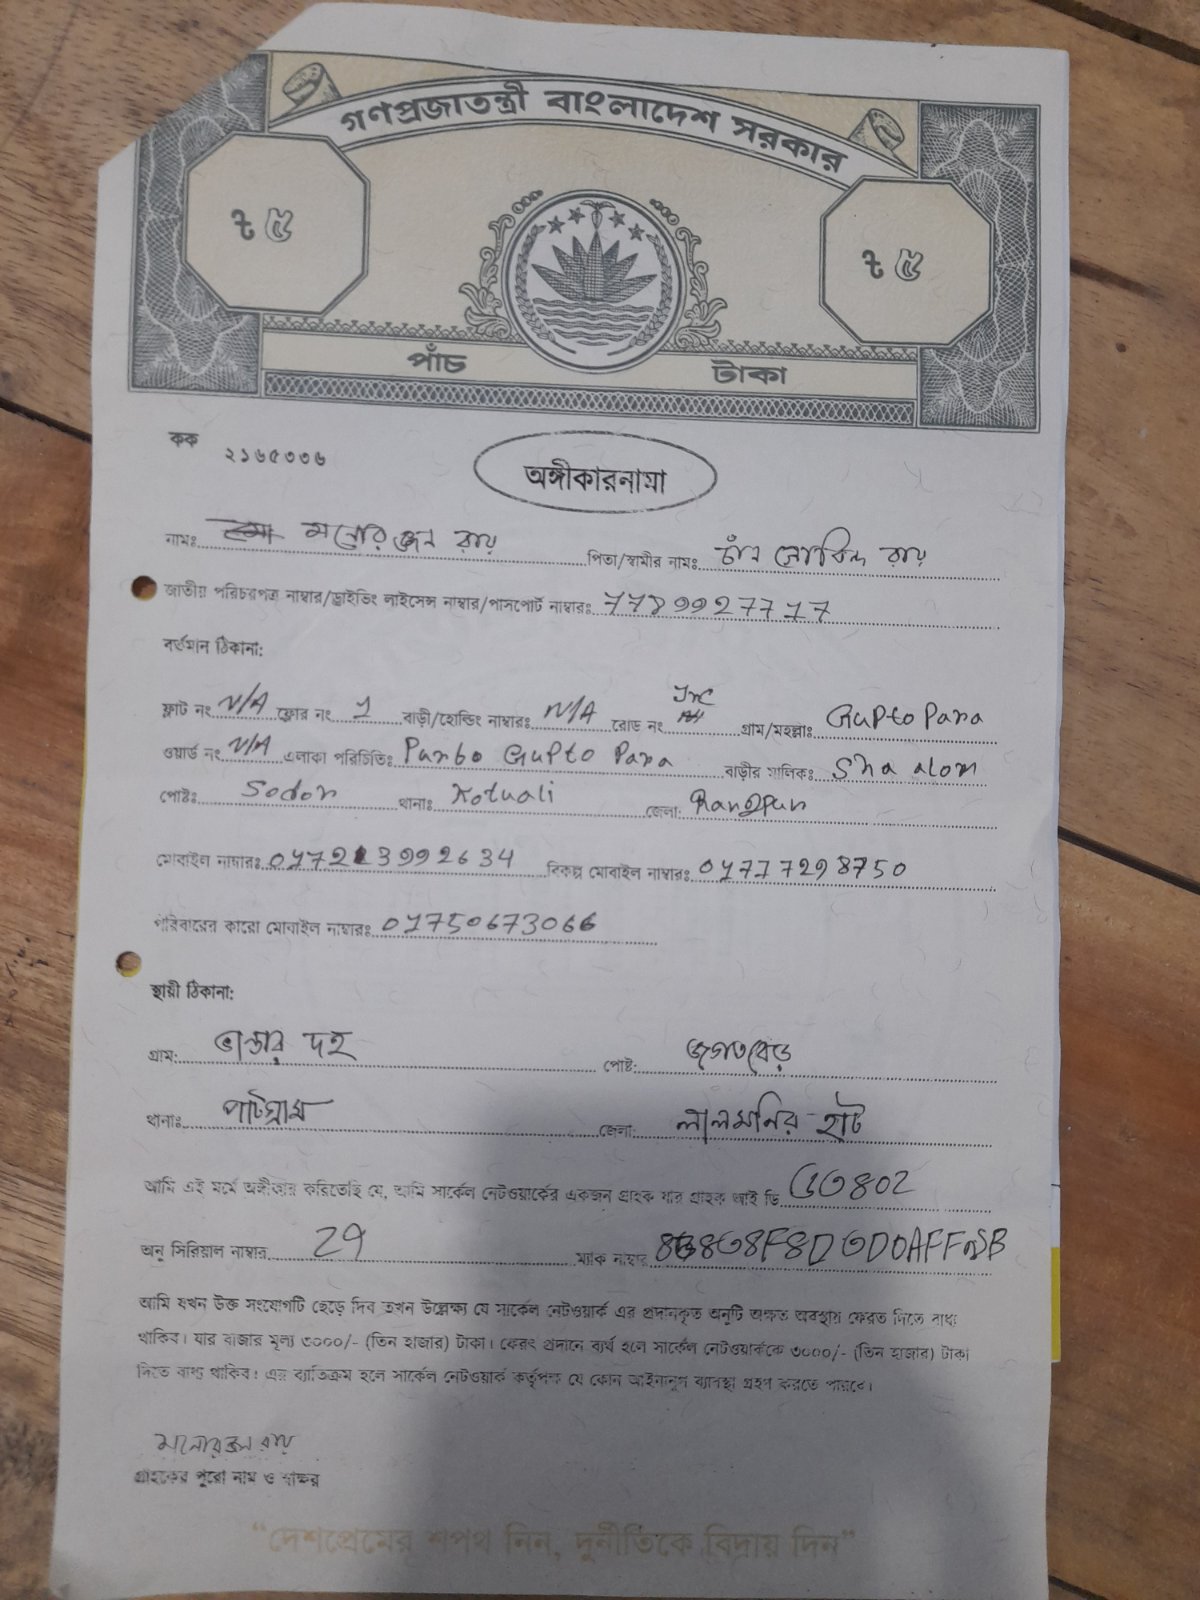 গণপ্রজাতন্ত্রী বাংলাদেশ সরকার
৳ ৫
৳ ৫
পাঁচ টাকা
কক ২১৬৫৩৩৬
অঙ্গীকারনামা
নামঃ মনোরঞ্জন রায় পিতা/স্বামীর নামঃ গোবিন্দ রায়
জাতীয় পরিচয়পত্র নাম্বার/ড্রাইভিং লাইসেন্স নাম্বার/পাসপোর্ট নাম্বারঃ 7789927717
বর্তমান ঠিকানা:
ফ্লাট নং N/A ফ্লোর নং 1 বাড়ী/হোল্ডিং নাম্বারঃ N/A রোড নং গ্রাম/মহল্লাঃ Gupto Para
ওয়ার্ড নং N/A এলাকা পরিচিতিঃ Purbo Gupto Para বাড়ীর মালিকঃ Sha alom
পোষ্টঃ Sodor থানাঃ Kotuali জেলা: Rangpur
মোবাইল নাম্বারঃ বিকল্প মোবাইল নাম্বারঃ 01717298750
পরিবারের কারো মোবাইল নাম্বারঃ 01750673066
স্থায়ী ঠিকানা:
গ্রাম: ভান্ডার দহ পোষ্ট: জগতবেড়
থানাঃ পাটগ্রাম জেলা: লালমনির হাট
আমি এই মর্মে অঙ্গীকার করিতেছি যে, আমি সার্কেল নেটওয়ার্কের একজন গ্রাহক যার গ্রাহক আই ডি
অনু সিরিয়াল নাম্বার 29 ম্যাক নাম্বার
আমি যখন উক্ত সংযোগটি ছেড়ে দিব তখন উল্লেক্ষ্য যে সার্কেল নেটওয়ার্ক এর প্রদানকৃত অনুটি অক্ষত অবস্থায় ফেরত দিতে বাধ্য
থাকিব। যার বাজার মূল্য ৩০০০/- (তিন হাজার) টাকা। ফেরৎ প্রদানে ব্যর্থ হলে সার্কেল নেটওয়ার্ককে ৩০০০/- (তিন হাজার) টাকা
দিতে বাধ্য থাকিব। এর ব্যাতিক্রম হলে সার্কেল নেটওয়ার্ক কর্তৃপক্ষ যে কোন আইনানুগ ব্যাবস্থা গ্রহণ করতে পারবে।
মনোরঞ্জন রায়
গ্রাহকের পুরো নাম ও স্বাক্ষর
“দেশপ্রেমের শপথ নিন, দুর্নীতিকে বিদায় দিন”